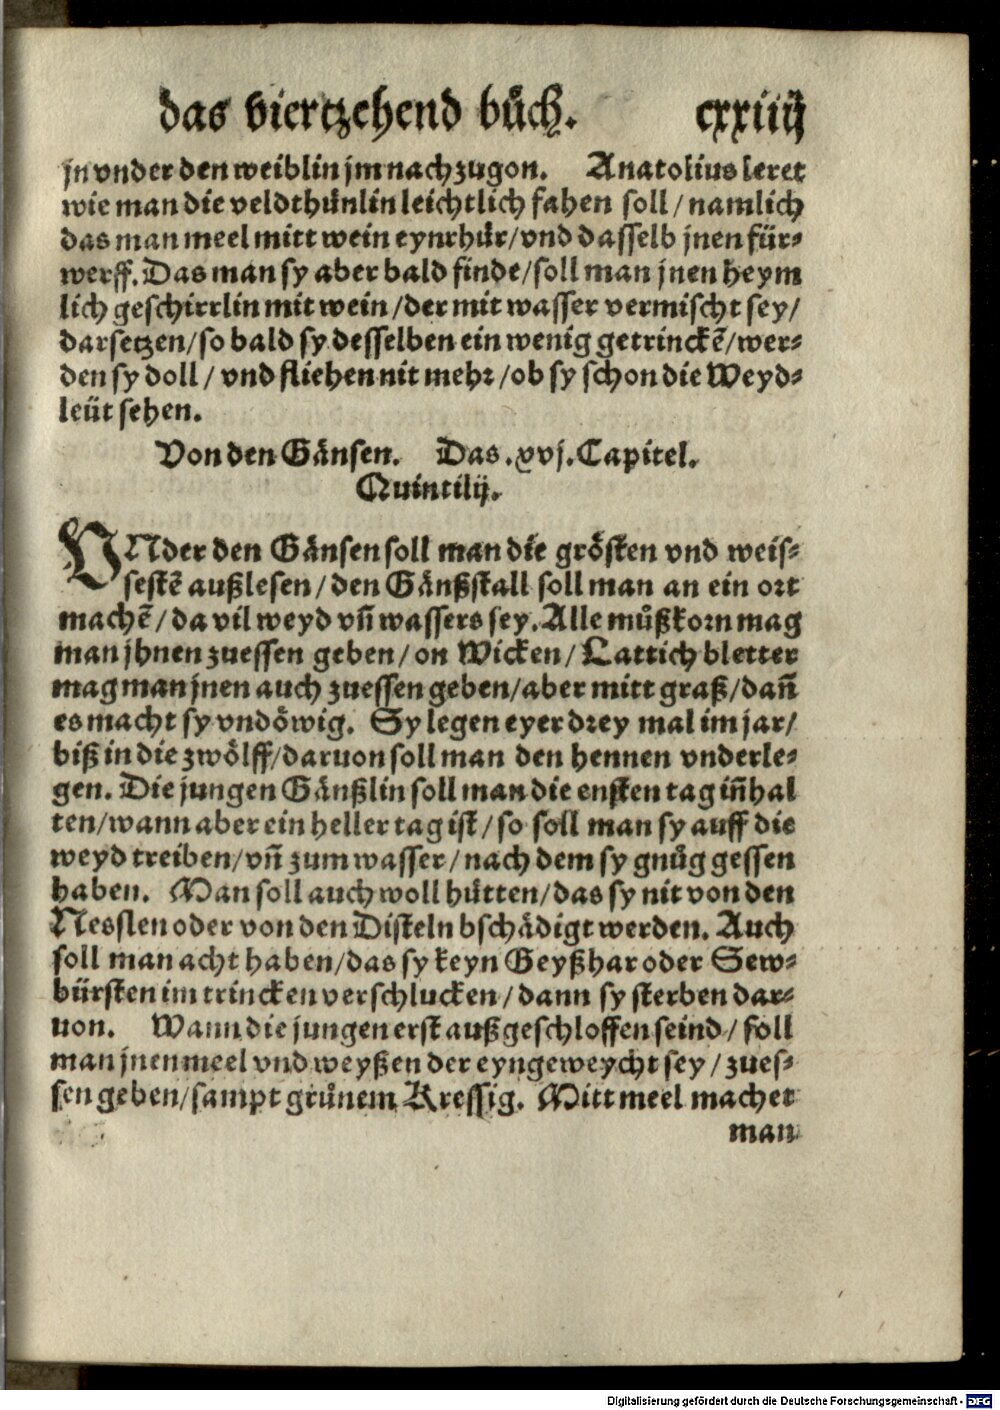 das viertzehend bůch. cxxiiij
jn vnder den weiblin jm nach zugon. Anatolius leret
wie man die veldthůnlin leichtlich fahen soll / namlich
das man meel mitt wein eynrhůr / vnd dasselb jnen für-
werff. Das man sy aber bald finde / soll man jnen heym
lich geschirrlin mit wein / der mit wasser vermischt sey /
darsetzen / so bald sy desselben ein wenig getrinckẽ / wer-
den sy doll / vnd fliehen nit mehr / ob sy schon die Weyd-
leüt sehen.
Von den Gänsen. Das .xvj. Capitel.
Quintilij.
VNder den Gänsen soll man die grösten vnd weis-
sestẽ außlesen / den Gänßstall soll man an ein ort
machẽ / da vil weyd vñ wassers sey. Alle můßkorn mag
man jhnen zuessen geben / on Wicken / Lattich bletter
mag man jnen auch zuessen geben / aber mitt graß / dañ
es macht sy vndöwig. Sy legen eyer drey mal im jar /
biß in die zwölff / daruon soll man den hennen vnderle-
gen. Die jungen Gänßlin soll man die ensten tag iñhal
ten / wann aber ein heller tag ist / so soll man sy auff die
weyd treiben / vñ zum wasser / nach dem sy gnůg gessen
haben. Man soll auch woll hütten / das sy nit von den
Nesslen oder von den Disteln bschädigt werden. Auch
soll man acht haben / das sy keyn Geyßhar oder Sew-
bürsten im trincken verschlucken / dann sy sterben dar-
uon. Wann die jungen erst außgeschloffen seind / soll
man jnen meel vnd weyßen der eyngeweycht sey / zues-
sen geben / sampt grůnem Kressig. Mitt meel machet
man
Digitalisierung gefördert durch die Deutsche Forschungsgemeinschaft - DFG